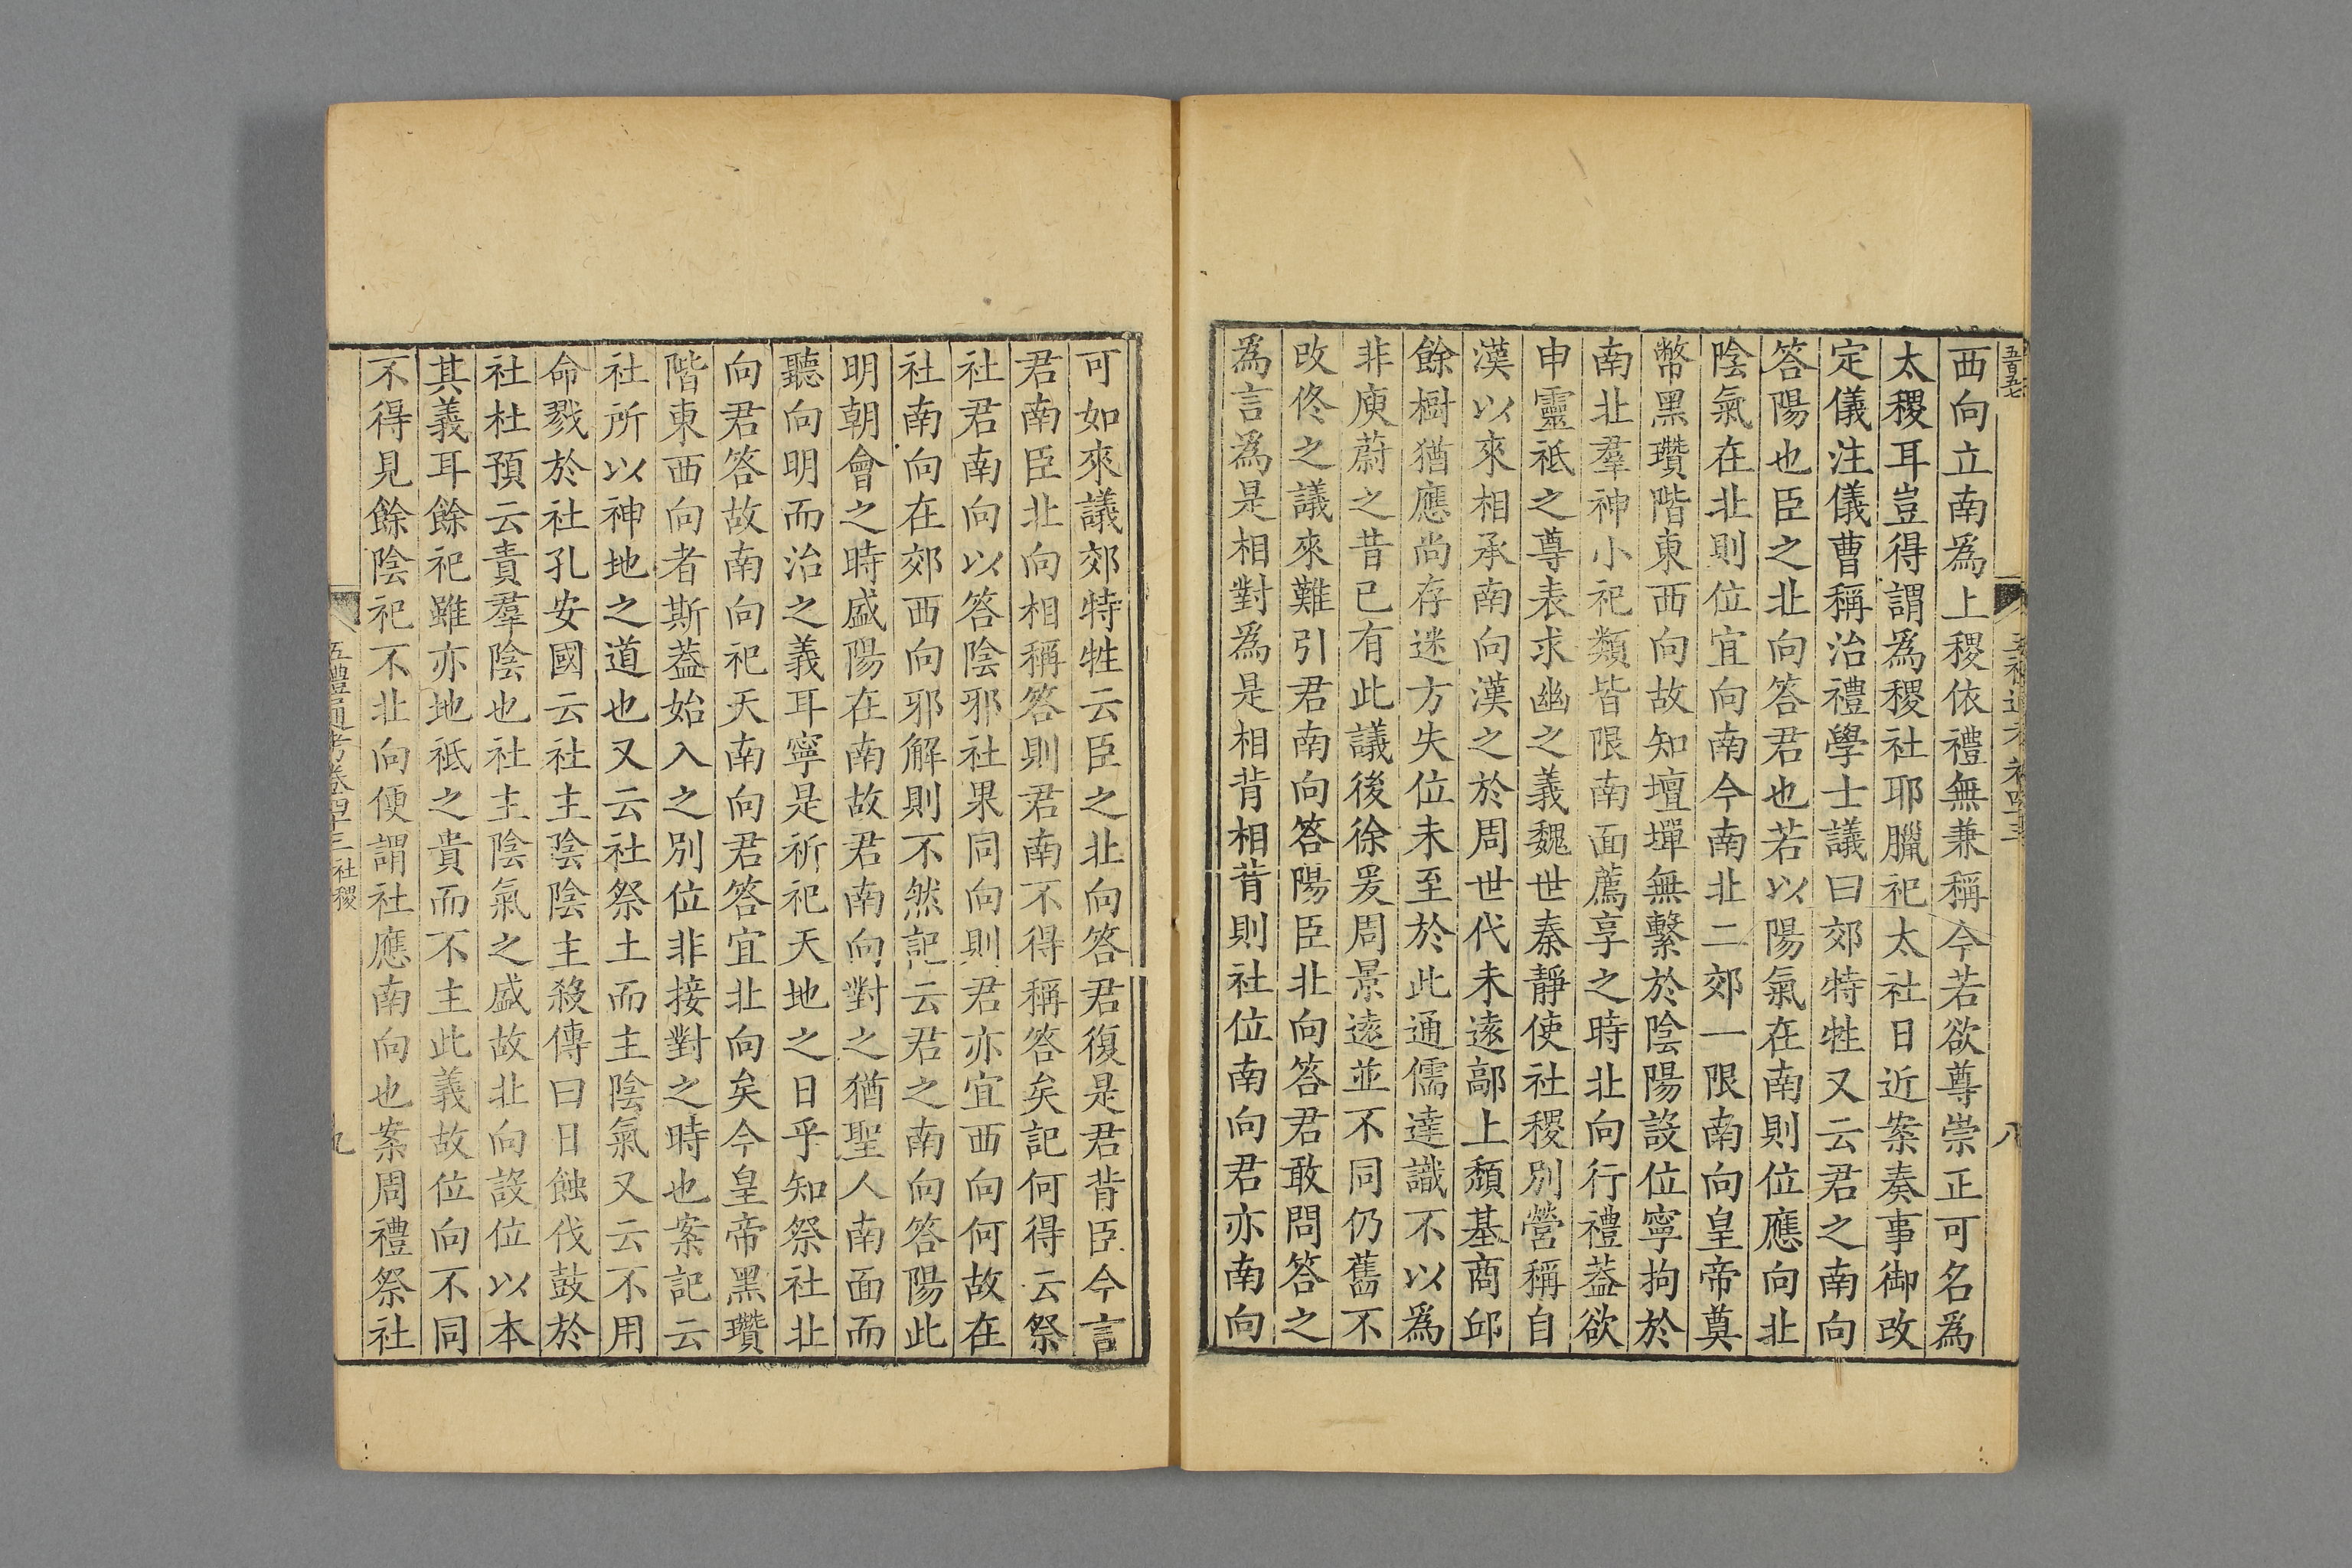 西向立南爲上稷依禮無兼稱今若欲尊崇正可名爲
太稷耳豈得謂爲稷社耶臘祀太社日近案奏事御改
定儀注儀曹稱治禮學士議曰郊特牲又云君之南向
答陽也臣之北向答君也若以陽氣在南則位應向北
陰氣在北則位宜向南今南北二郊一限南向皇帝奠
幣黑瓚階東西向故知壇墠無繫於陰陽設位寧拘於
南北羣神小祀類皆限南面薦享之時北向行禮葢欲
申靈祗之尊表求幽之義魏世秦靜使社稷別營稱自
漢以來相承南向漢之於周世代未遠鄗上頹基商邱
餘樹猶應尚存迷方失位未至於此通儒達識不以爲
非庾蔚之昔已有此議後徐爰周景遠並不同仍舊不
改佟之議來難引君南向答陽臣北向答君敢問答之
爲言爲是相對爲是相背相背則社位南向君亦南向
八
可如來議郊特牲云臣之北向答君復是君背臣今言
君南臣北向相稱答則君南不得稱答矣記何得云祭
社君南向以答陰邪社果同向則君亦宜西向何故在
社南向在郊西向邪解則不然記云君之南向答陽此
明朝會之時盛陽在南故君南向對之猶聖人南面而
聽向明而治之義耳寧是祈祀天地之日乎知祭社北
向君答故南向祀天南向君答宜北向矣今皇帝黑瓚
階東西向者斯葢始入之別位非接對之時也案記云
社所以神地之道也又云社祭土而主陰氣又云不用
命戮於社孔安國云社主陰陰主殺傳曰日蝕伐鼓於
社杜預云責羣陰也社主陰氣之盛故北向設位以本
其義耳餘祀雖亦地祗之貴而不主此義故位向不同
不得見餘陰祀不北向便謂社應南向也案周禮祭社
五禮通考卷四十三 社稷 九